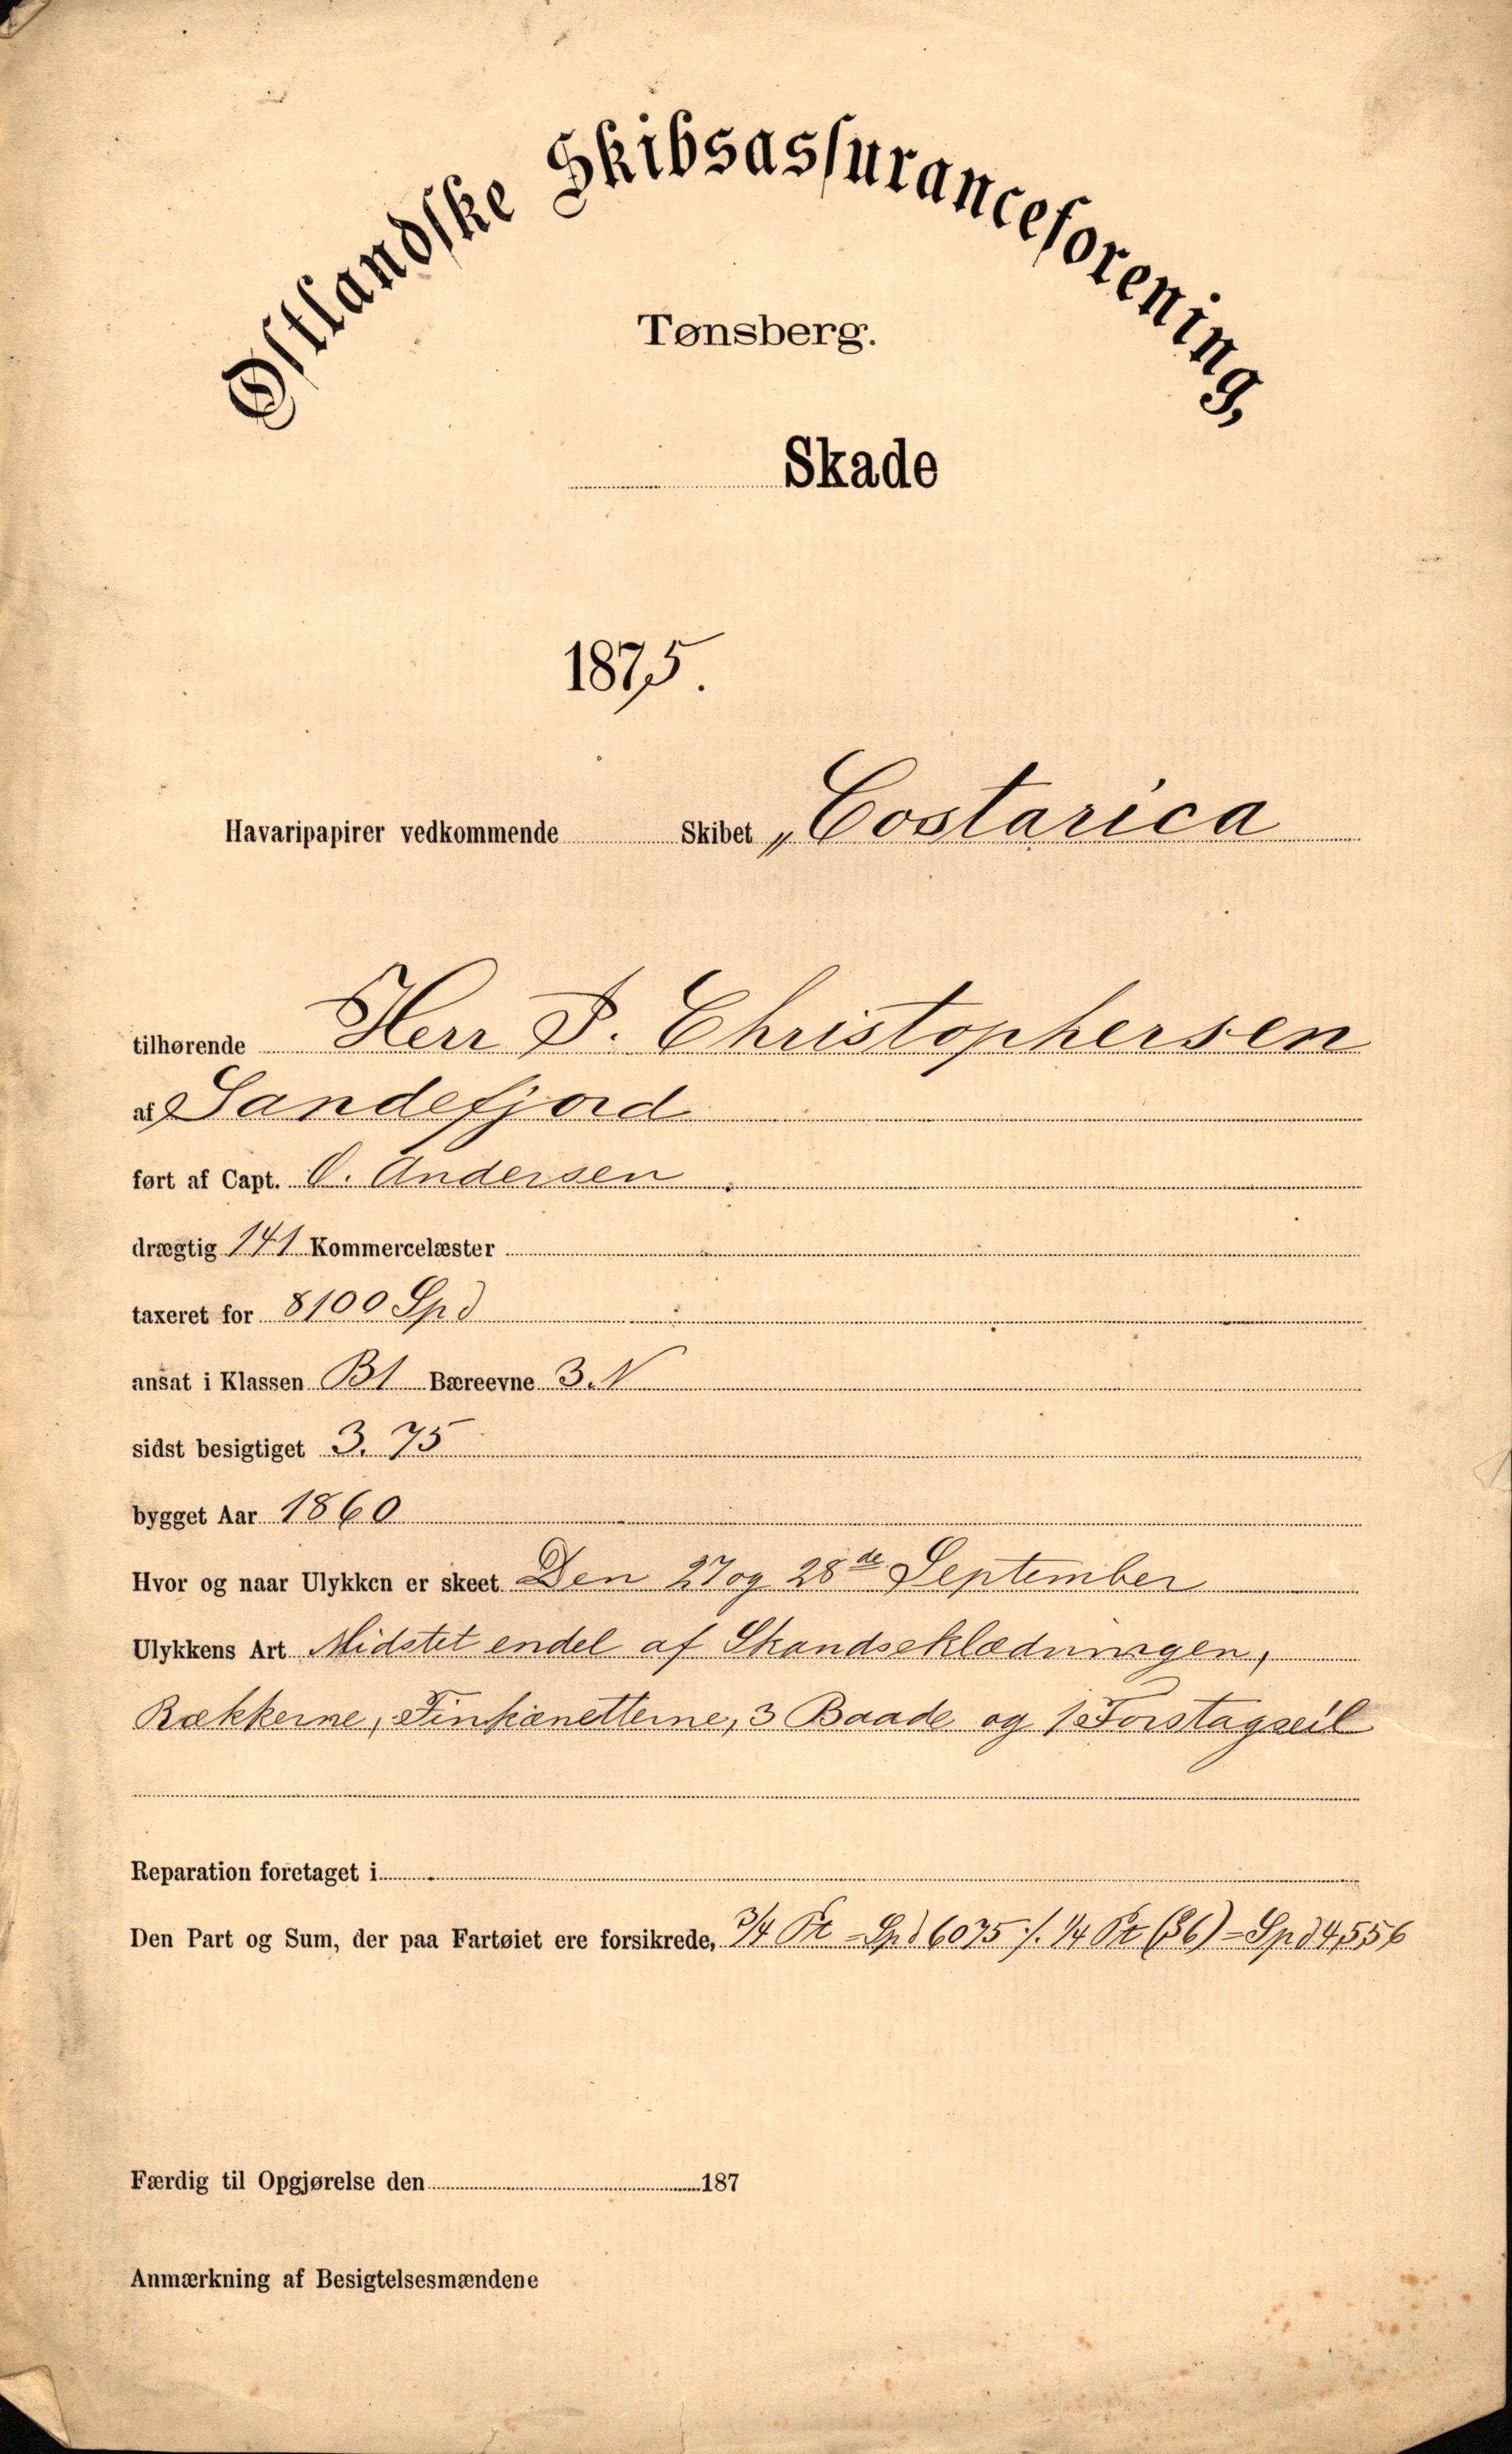 Østlandske Skibsassuranceforening,
Tønsberg.
Skade
1875.
Havaripapirer vedkommende Skibet „Costarica
tilhørende Herr P. Christophersen
af Sandefjord
ført af Capt. O. Andersen
drægtig 141 Kommercelæster
taxeret for 8100 Spd
ansat i Klassen B1 Bæreevne 3. N
sidst besigtiget 3. 75
bygget Aar 1860
Hvor og naar Ulykken er skeet Den 27 og 28de September
Ulykkens Art Midstet endel af Skandseklædningen,
Rækkerne, Finkenetterne, 3 Baade og 1 Forstagseil
Reparation foretaget i
Den Part og Sum, der paa Fartøiet ere forsikrede, 3/4 Pt = Spd 6075 ./. 1/4 Pt (36) = Spd 4,556
Færdig til Opgjørelse den 187
Anmærkning af Besigtelsesmændene